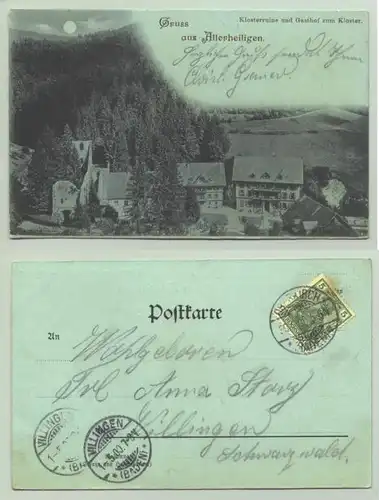 Gruss
aus Allerheiligen.
Klosterruine und Gasthof zum Kloster.
Herzlichen Gruß sendet Ihnen
Postkarte
An
Wohlgeboren
Frl Anna
Villingen
Schwarzwald.
OBERKIRCH
5
VILLINGEN
(BADEN)
VILLINGEN
(BADEN)